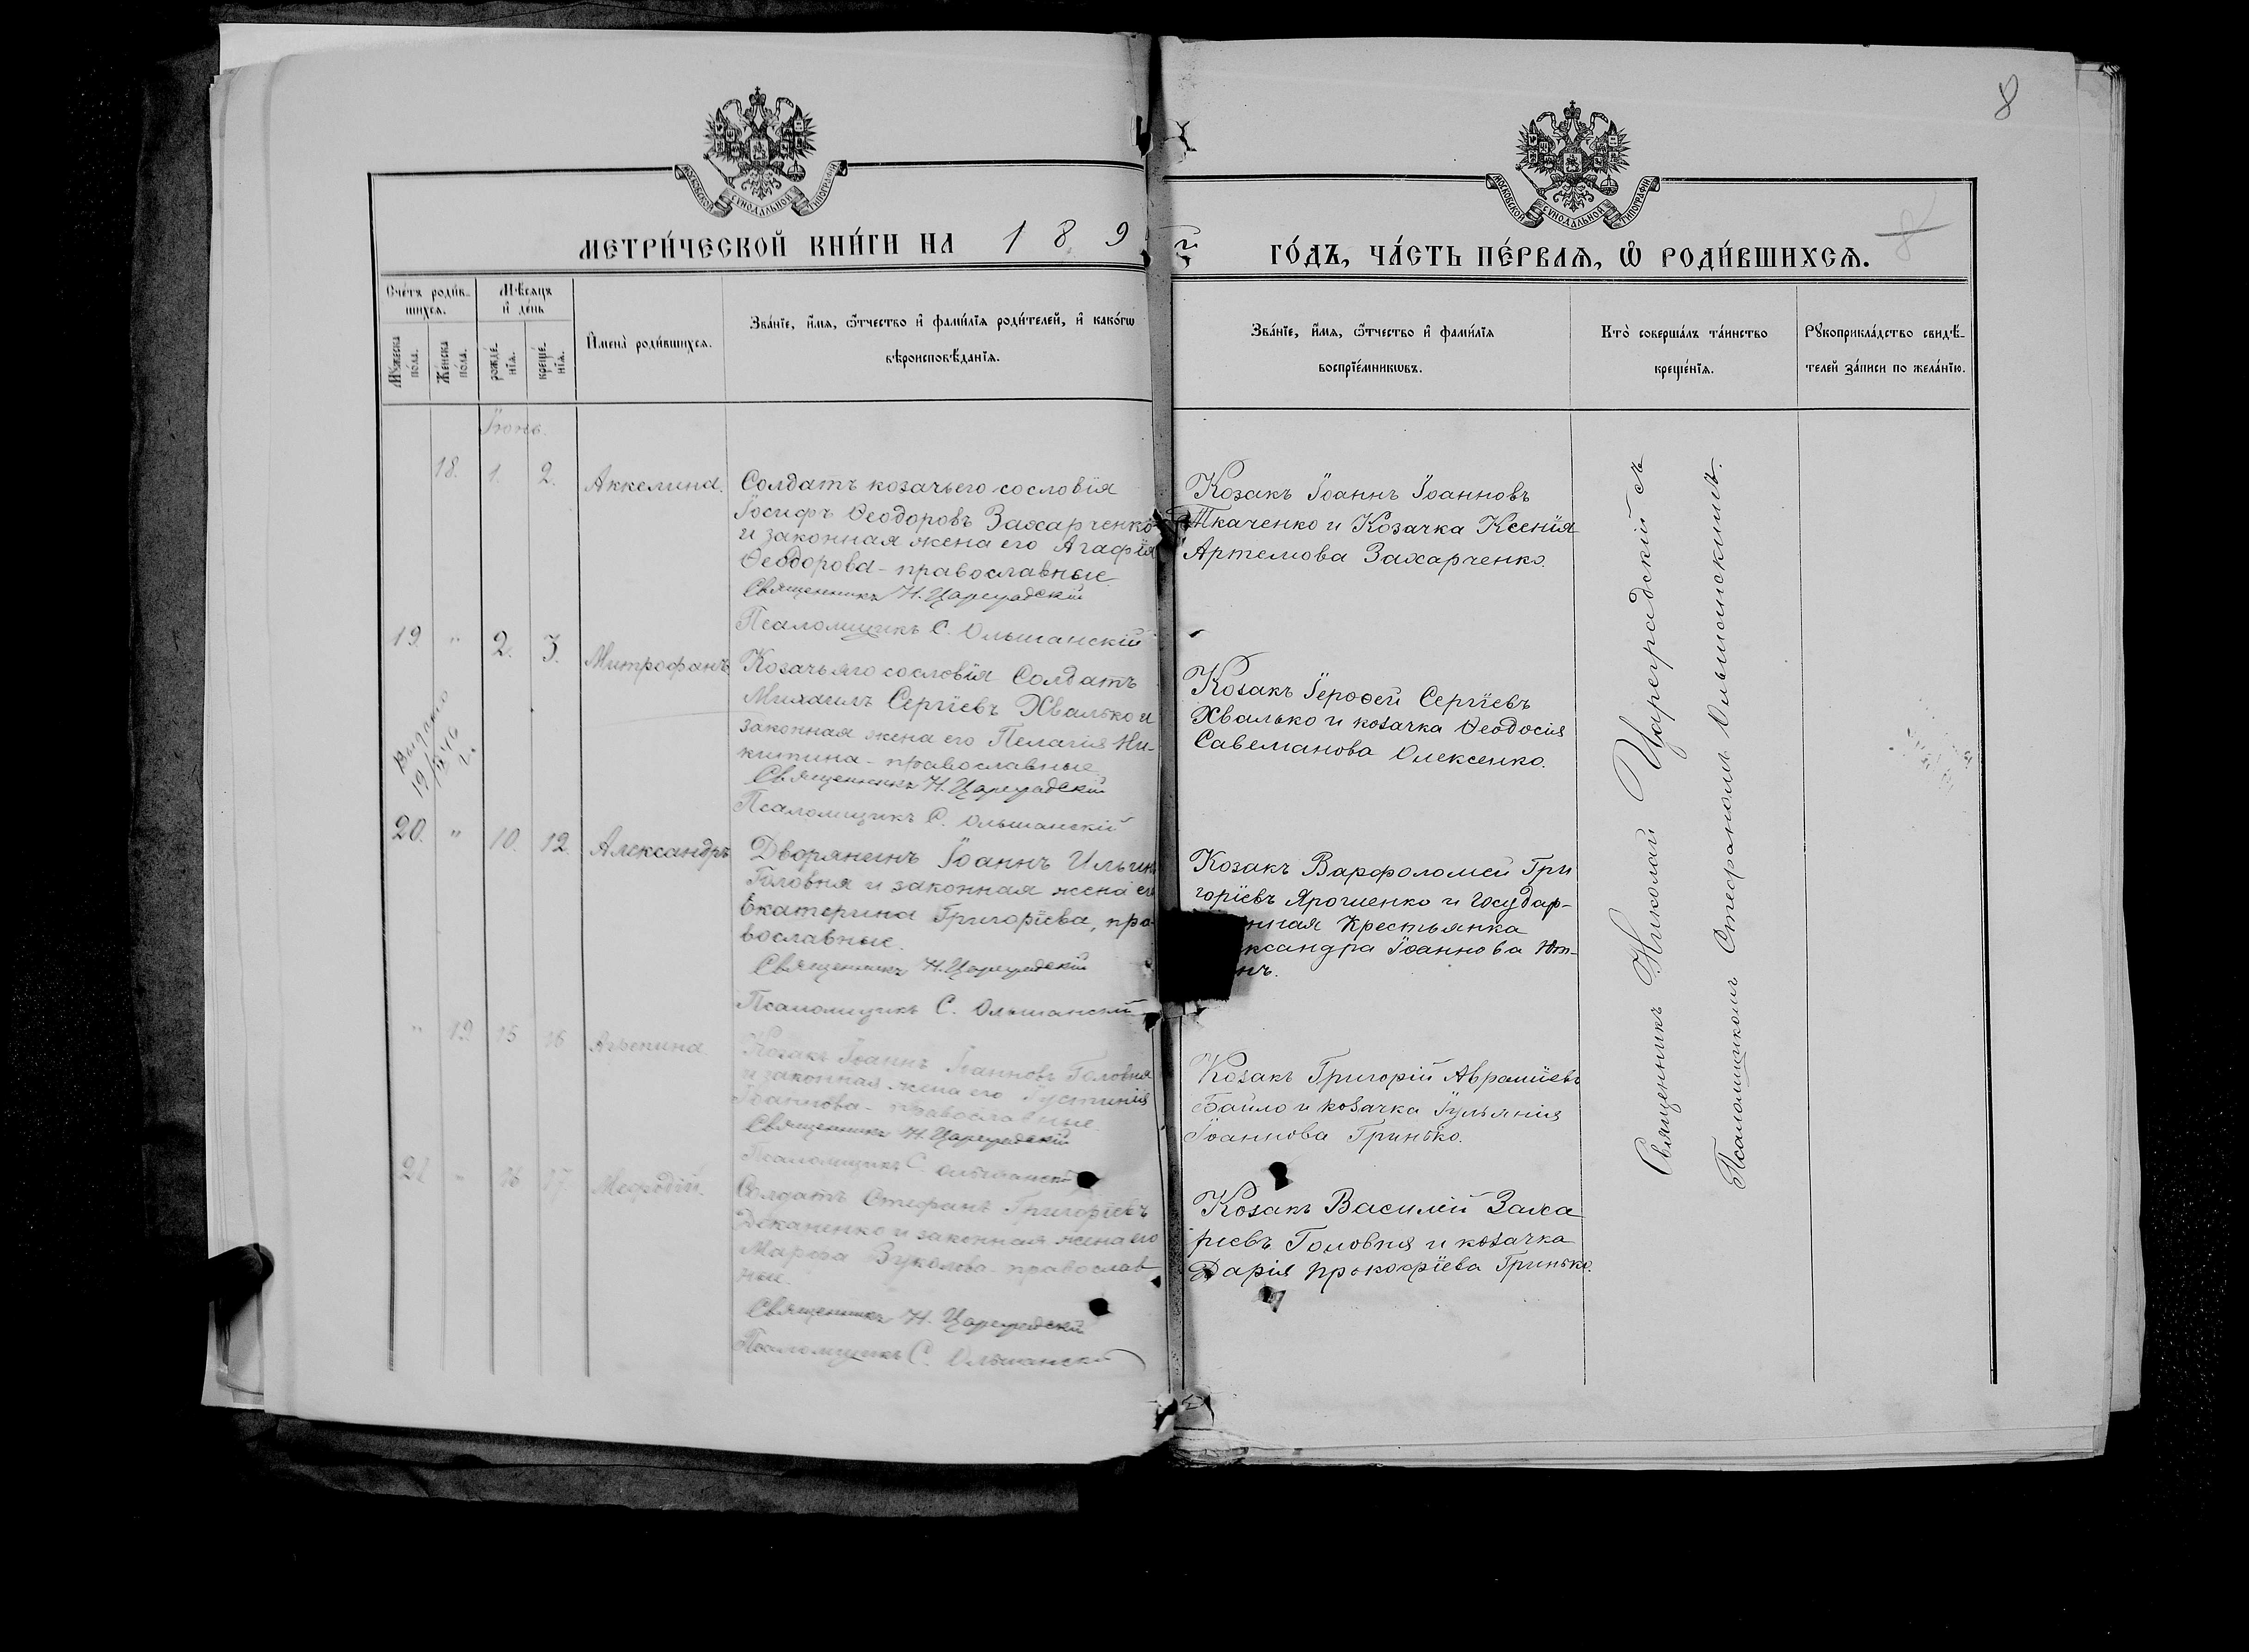 8
МОСКОВСКОЙ СѴНОДАЛЬНОЙ ТИПОГРАФИИ
МОСКОВСКОЙ СѴНОДАЛЬНОЙ ТИПОГРАФИИ
МЕТРИ́ЧЕСКОЙ КНИ́ГИ НА 1 8 9
ГО́ДЪ, ЧА́СТЬ ПЕ́РВАѦ, Ѡ҆ РОДИ́ВШИХСѦ.
8
Сче́тъ роди́в-
шихсѧ.
Мꙋ́жеска
по́ла.
Же́нска
по́ла.
Мѣ́сѧцъ
и҆ де́нь
рожде́-
нїѧ.
креще́-
нїѧ.
И҆мена̀ роди́вшихсѧ.
Зва́нїе, и҆́мѧ, ѻ҆́тчество и҆ фами́лїѧ роди́телей, и҆ како́гѡ
вѣроисповѣ́данїѧ.
Зва́нїе, и҆́мѧ, ѻ҆́тчество и҆ фами́лїѧ
воспрїе́мникѡвъ.
Кто̀ соверша́лъ та́инство
креще́нїѧ.
Рꙋкоприкла́дство свидѣ́-
телей за́писи по жела́нїю.
Іюнь.
18. 1. 2. Аккелина.
Солдатъ козачьего сословія
Іосифъ Ѳеодоровъ Захарченко
и законная жена его Агафія
Ѳеодорова - православные
Священникъ Н. Цареградскій
Псаломщикъ С. Ольшанскій
Козакъ Іоаннъ Іоанновъ
Ткаченко и Козачка Ксенія
Артемова Захарченко.
19. " 2. 3. Митрофанъ
Козачьяго сословія Солдатъ
Михаилъ Сергіевъ Хвалько и
законная жена его Пелагія Ни-
китина - православные
Священникъ Н. Цареградскій
Псаломщикъ С. Ольшанскій
Выдано
Козакъ Іерофей Сергіевъ
Хвалько и козачка Ѳеодосія
Савеманова Олексенко.
20. " 10. 12. Александръ
Дворянинъ Іоаннъ Ильинъ
Головня и законная жена его
Екатерина Григоріева, пра-
вославные.
Священникъ Н. Цареградскій
Псаломщикъ С. Ольшанскій
Козакъ Варфоломей Гри
горіевъ Ярошенко и Государ-
нная Крестьянка
ксандра Іоаннова Кт-
нъ.
" 19 15 16 Агрепина
Козакъ Іоаннъ Іоанновъ Головня
и законная жена его Іустинія
Іоаннова - православные.
Священникъ Н. Цареградскій
Псаломщикъ С. Ольшанскій
Козакъ Григорій Авраміевъ
Байло и козачка Іульянія
Іоаннова Гринько.
21 " 16 17. Меѳодій.
Солдатъ Стефанъ Григоріевъ
Деканенко и законная жена его
Марфа Вуколова - православ
ные.
Священникъ Н. Цареградскій
Псаломщикъ С. Ольшанскій
Козакъ Василій Заха
ріевъ Головня и козачка
Дарія Прокофіева Гринько.
Священникъ Николай Цареградскій съ
Псаломщикомъ Стефаномъ Ольшанскимъ.